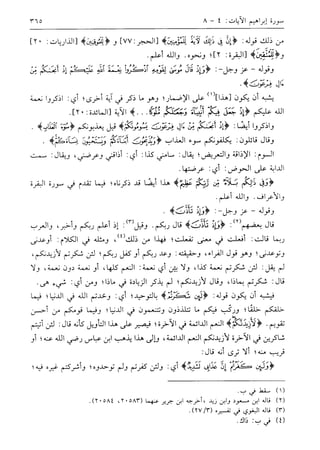 سورة إبراهيم الآيات: ٤ - ٨ ٣٦٥
من ذلك قوله: ﴿إِنَّ فِي ذَٰلِكَ لَآيَةً لِّلْمُؤْمِنِينَ﴾ [الحجر: ٧٧] و ﴿لِّلْمُوقِنِينَ﴾ [الذاريات: ٢٠]
و﴿لِّلْمُتَّقِينَ﴾ [البقرة: ٢]؛ ونحوه. والله أعلم.
وقوله - عز وجل -: ﴿وَإِذْ قَالَ مُوسَىٰ لِقَوْمِهِ اذْكُرُوا نِعْمَةَ اللَّهِ عَلَيْكُمْ إِذْ أَنجَاكُم مِّنْ
آلِ فِرْعَوْنَ﴾.
يشبه أن يكون [هذا](١) على الإضمار؛ وهو ما ذكر في آية أخرى؛ أي: اذكروا نعمة
الله عليكم ﴿إِذْ جَعَلَ فِيكُمْ أَنبِيَاءَ وَجَعَلَكُم مُّلُوكًا...﴾ الآية [المائدة: ٢٠].
واذكروا أيضًا: ﴿إِذْ أَنجَاكُم مِّنْ آلِ فِرْعَوْنَ يَسُومُونَكُمْ﴾ قيل يعذبونكم ﴿سُوءَ الْعَذَابِ﴾.
وقال قائلون: يكلفونكم سوء العذاب ﴿وَيُذَبِّحُونَ أَبْنَاءَكُمْ وَيَسْتَحْيُونَ نِسَاءَكُمْ﴾.
السوم: الإذاقة والتعريض؛ يقال: سامني كذا: أي: أذاقني وعرضني، ويقال: سمت
الدابة على الحوض؛ أي: عرضتها.
﴿وَفِي ذَٰلِكُم بَلَاءٌ مِّن رَّبِّكُمْ عَظِيمٌ﴾ هذا أيضًا قد ذكرناه؛ فيما تقدم في سورة البقرة
والأعراف. والله أعلم.
وقوله - عز وجل -: ﴿وَإِذْ تَأَذَّنَ﴾.
قال بعضهم(٢): ﴿وَإِذْ تَأَذَّنَ﴾ قال ربكم. وقيل(٣): إذ أعلم ربكم وأخبر، والعرب
ربما قالت: أفعلت في معنى تفعلت؛ فهذا من ذلك(٤)، ومثله في الكلام: أوعدني
وتوعدني؛ وهو قول الفراء، وحقيقته: وعد ربكم أو كفل ربكم؛ لئن شكرتم لأزيدنكم،
لم يقل: لئن شكرتم نعمة كذا، ولا بين أي نعمة: النعم كلها، أو نعمة دون نعمة، ولا
قال: شكرتم بماذا، وقال لأزيدنكم؛ لم يذكر الزيادة في ماذا؛ ومن أي: شيء هي.
فيشبه أن يكون قوله: ﴿لَئِن شَكَرْتُمْ﴾ بالتوحيد؛ أي: وحدتم الله في الدنيا؛ فيما
خلقكم خلقًا؛ وركب فيكم ما تتلذذون وتتنعمون في الدنيا؛ وفيما قومكم من أحسن
تقويم. ﴿لَأَزِيدَنَّكُمْ﴾ النعم الدائمة في الآخرة؛ فيصير على هذا التأويل كأنه قال: لئن أتيتم
شاكرين في الآخرة لأزيدنكم النعم الدائمة، وإلى هذا يذهب ابن عباس رضي الله عنه؛ أو
قريب منه؛ ألا ترى أنه قال:
﴿وَلَئِن كَفَرْتُمْ إِنَّ عَذَابِي لَشَدِيدٌ﴾ أي: ولئن كفرتم ولم توحدوه؛ وأشركتم غيره فيه؛
(١) سقط في ب.
(٢) قاله ابن مسعود وابن زيد، أخرجه ابن جرير عنهما (٢٠٥٨٣)، (٢٠٥٨٤).
(٣) قاله البغوي في تفسيره (٢٧/٣).
(٤) في ب: ذاك.